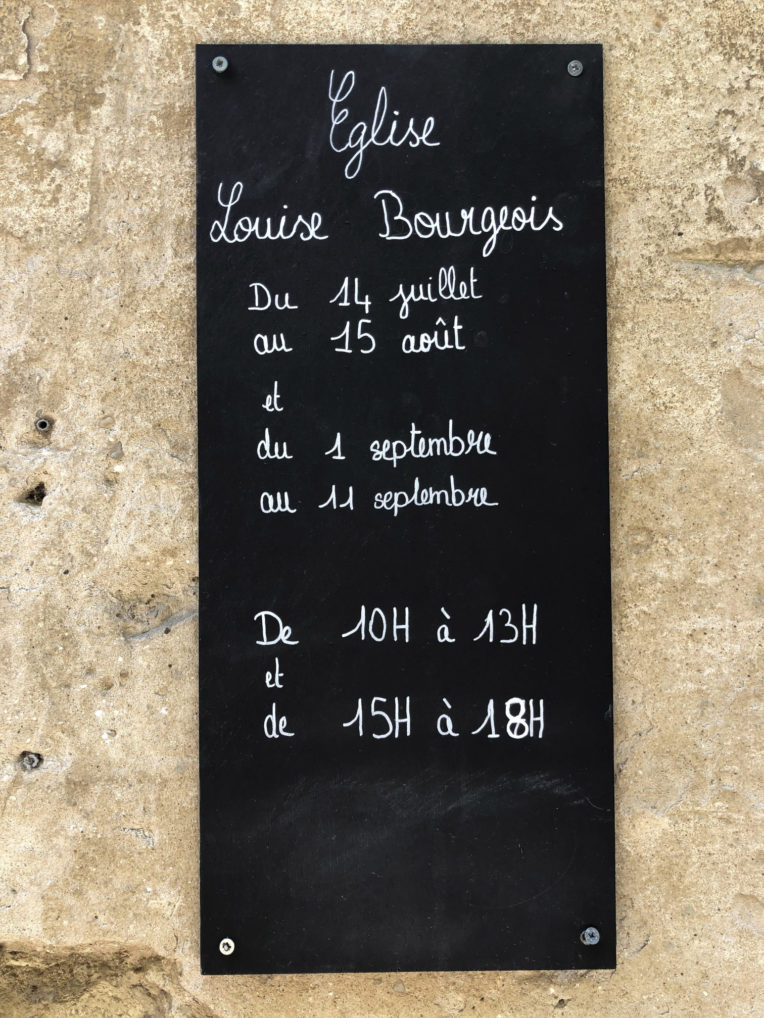 Eglise
Louise Bourgeois
Du 14 juillet
au 15 août
et
du 1 septembre
au 11 septembre
De 10H à 13H
et
de 15H à 18H